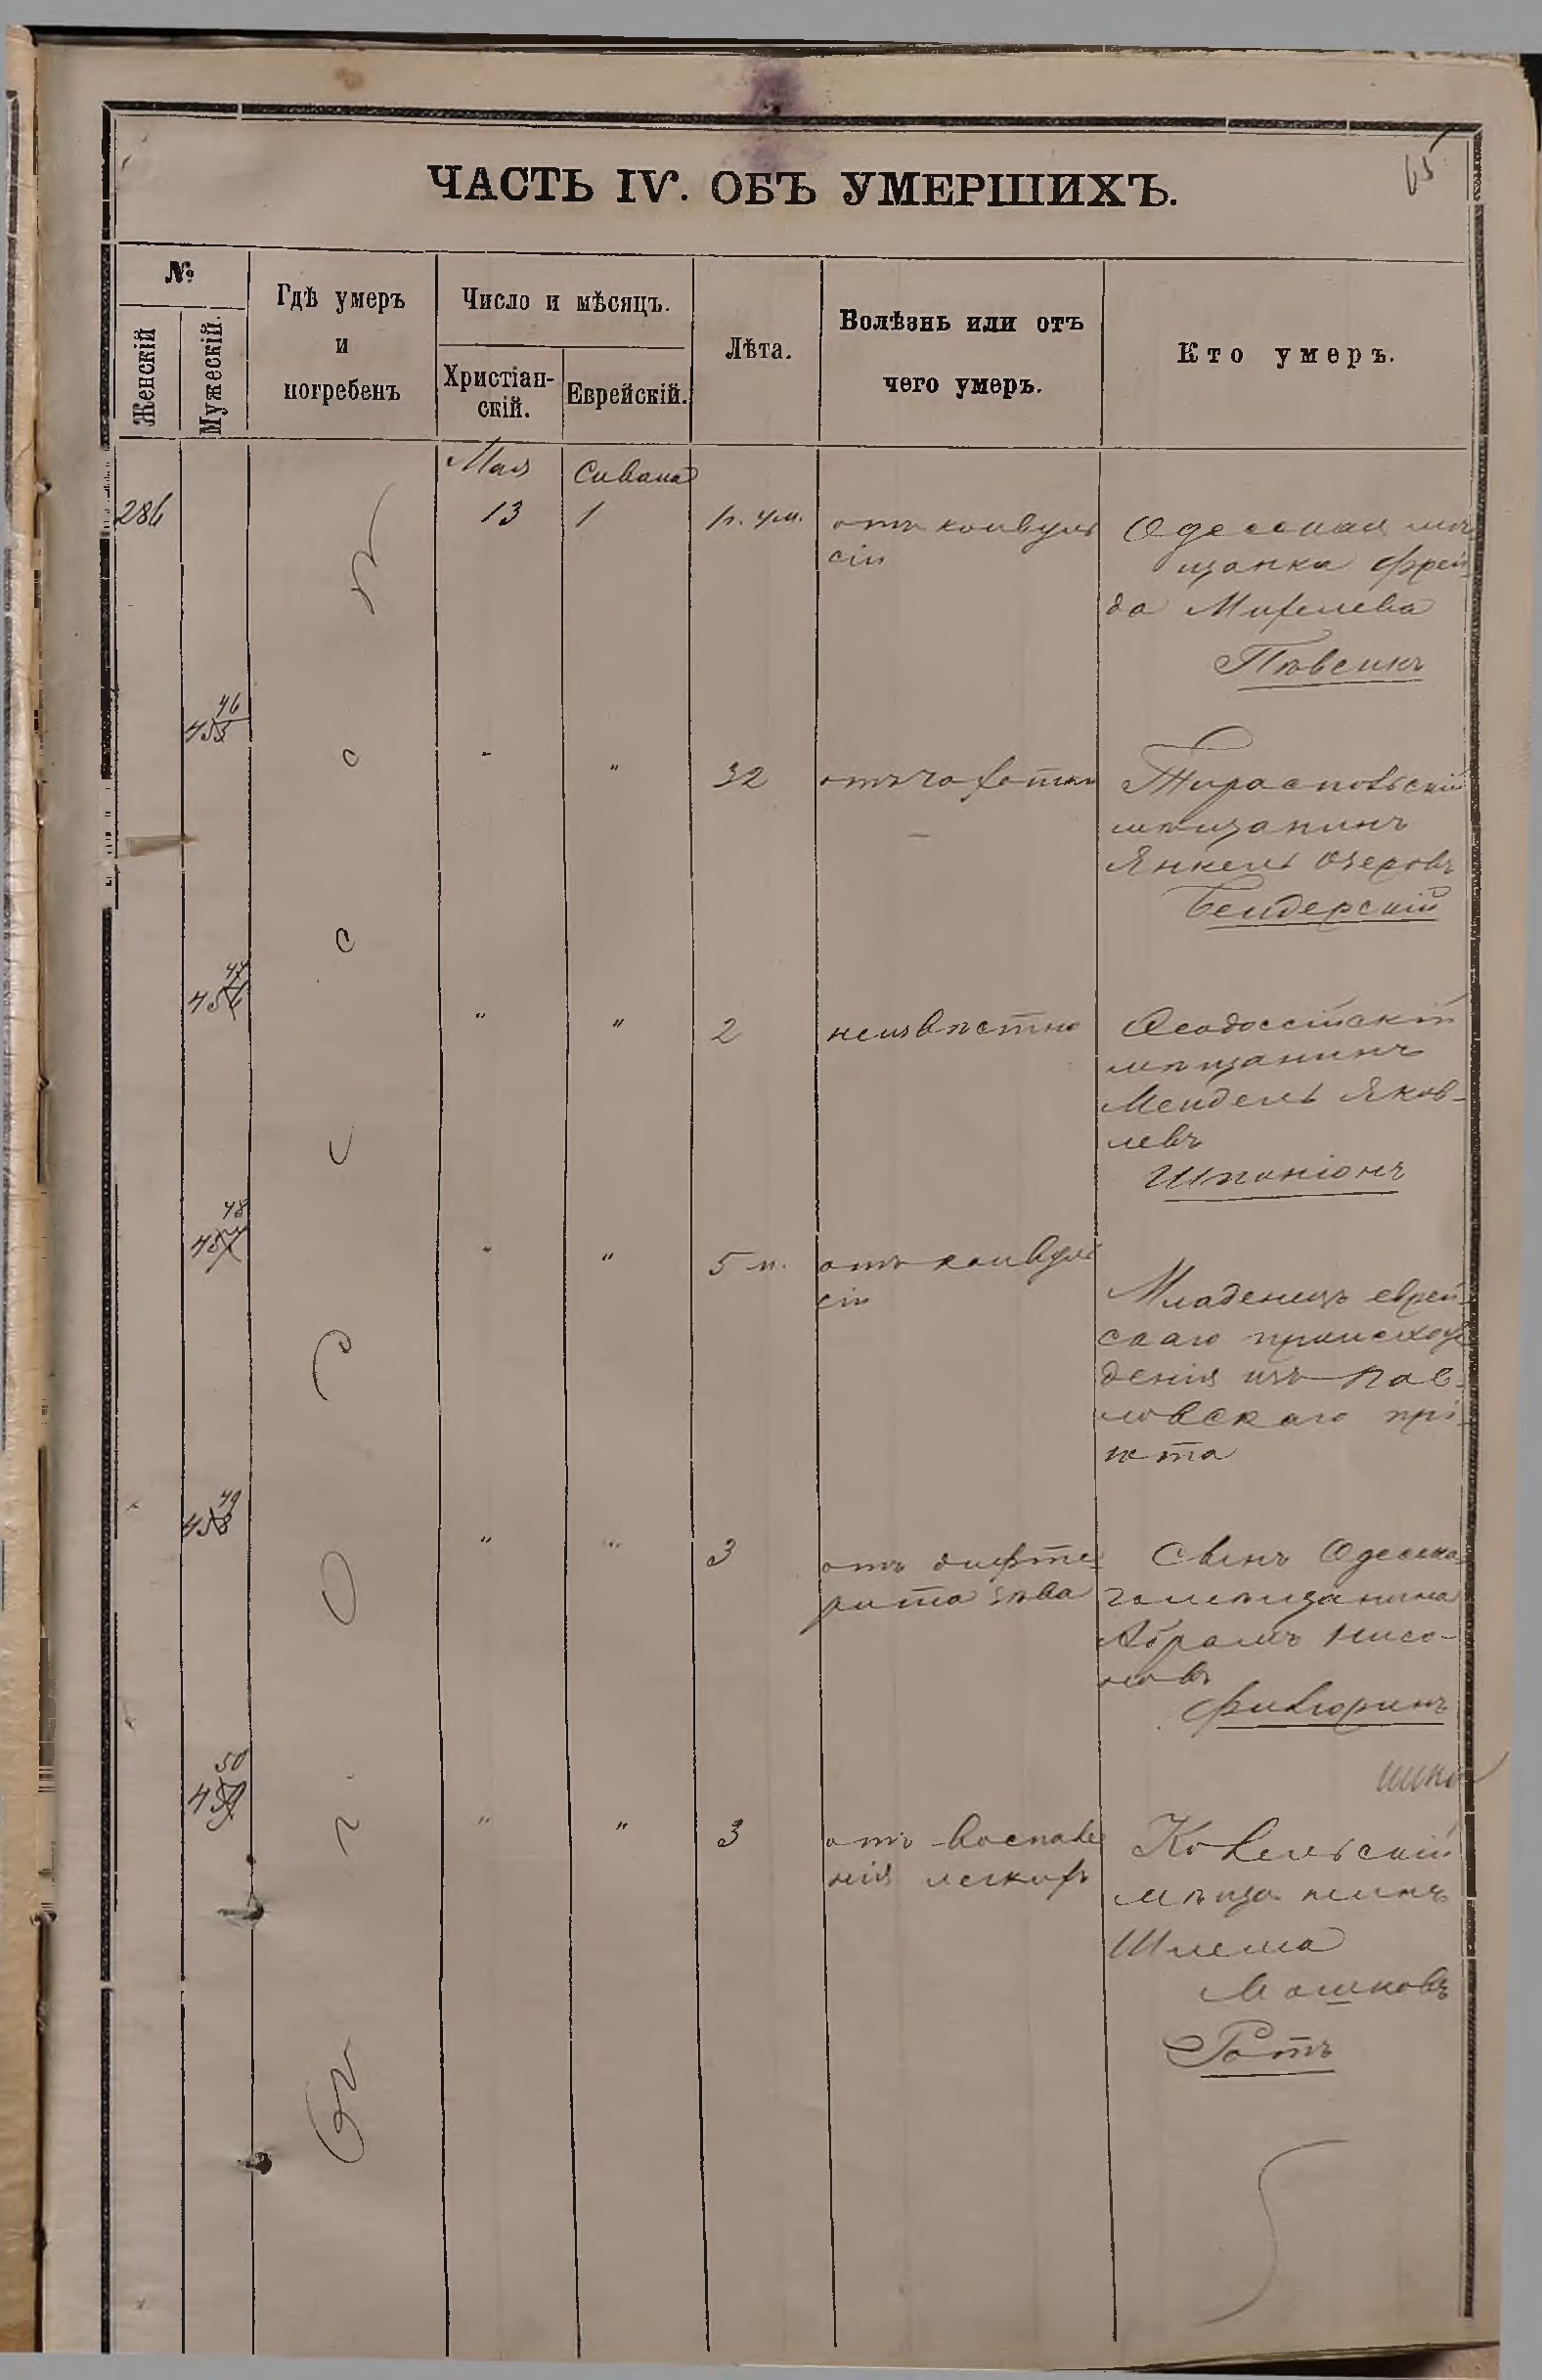 65
ЧАСТЬ IV. ОБЪ УМЕРШИХЪ.
№
Женскій
Мужескій.
Гдѣ умеръ
и
погребенъ
Число и мѣсяцъ.
Христіан-
скій.
Еврейскій.
Лѣта.
Болѣзнь или отъ
чего умеръ.
Кто умеръ.
Мая
Сивана
286
13
1
1 г. 4 м.
отъ конвуль
сіи
Одесская мѣ
щанка Фрей-
да Михелева
Пѣвсикъ
46
455
"
"
32
отъ чахотки
Тираспольскій
мѣщанинъ
Янкель Озеровъ
Бендерскій
47
456
"
"
2
неизвѣстно
Ѳеодосійскій
мѣщанинъ
Мендель Яков-
левъ
Шпаніонъ
48
457
"
"
5 м.
отъ конвуль
сіи
Младенецъ еврей-
скаго происхож
денія изъ Пав-
ловскаго прі-
юта
49
458
"
"
3
отъ дифте-
рита зѣва
Сынъ Одесска-
го мѣщанина
Абрамъ Нисо-
новъ
50
459
"
"
3
отъ воспале
нія легкихъ
Ковельскій
мѣщанинъ
Шлема
Мошковъ
Ротъ
Въ г. Одессѣ